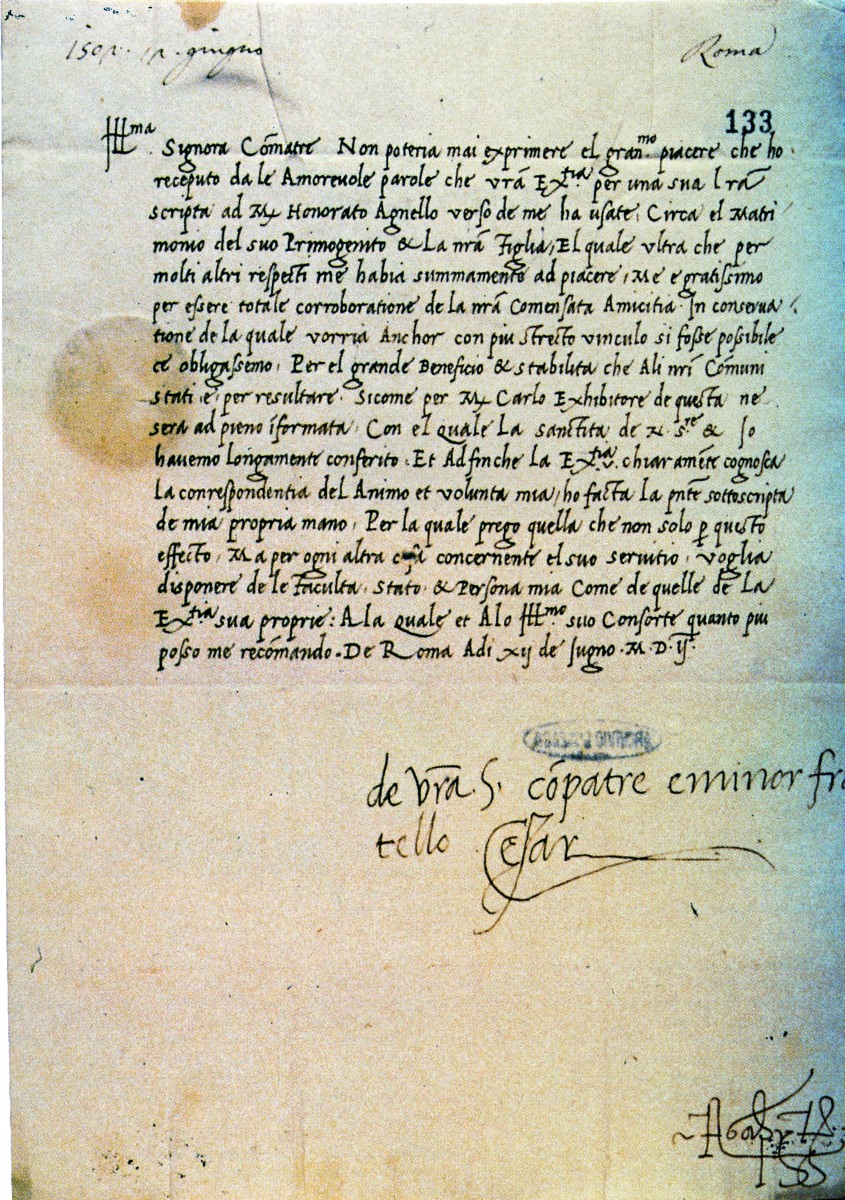 1502. 12. giugno Roma
133
Ill.ma Signora Cōmatre Non poteria mai exprimere el gran.mo piacere che ho
receputo da le Amorevole parole che vrā Ex.tia per una sua lrā
scripta ad M. Honorato Agnello verso de me ha usate, Circa el Matri
monio del suo Primogenito & La nrā Figlia, El quale ultra che per
molti altri respecti me habia summamente ad piacere, Me e gratissimo
per essere totale corroboratione de la nrā Comensata Amicitia. In conserva
tione de la quale vorria Anchor con piu strecto vinculo si fosse possibile
ce obligassemo, Per el grande Beneficio & stabilita che Ali nrī Cōmuni
stati e per resultare. Sicome per M. Carlo Exhibitore de questa ne
sera ad pieno īformata. Con el quale La sanctita de N. S.re & Io
havemo Longamente conferito. Et Adfinche La Ex.tia v. chiaramēte cognosca
La conrespondentia del Animo et volunta mia, ho facta La pnte sottoscripta
de mia propria mano, Per la quale prego quella che non solo p questo
effecto, Ma per ogni altra concernente el suo servitio, voglia
disponere de le Faculta, Stato, & Persona mia Come de quelle de La
Ex.tia sua proprie: A La quale et Alo Ill.mo suo Consorte quanto piu
posso me recōmando. De Roma Adi xij de Jugno. M.D.ij.
de vrā S. cōpatre e minor fra
tello Cesar
Agapytus